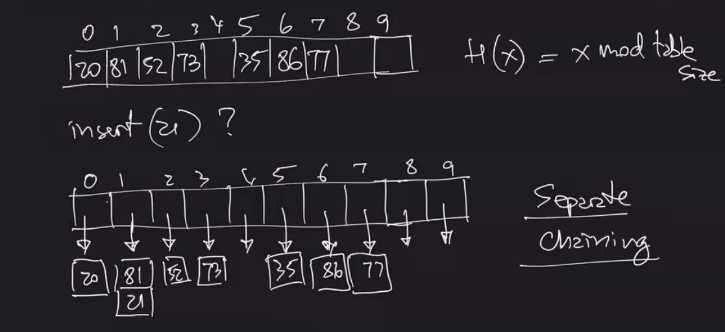 0 1 2 3 4 5 6 7 8 9
20 81 52 73 35 86 77
H(x) = x mod table size
insert (21) ?
0 1 2 3 4 5 6 7 8 9
20 81 52 73 35 86 77
21
Separate
Chaining